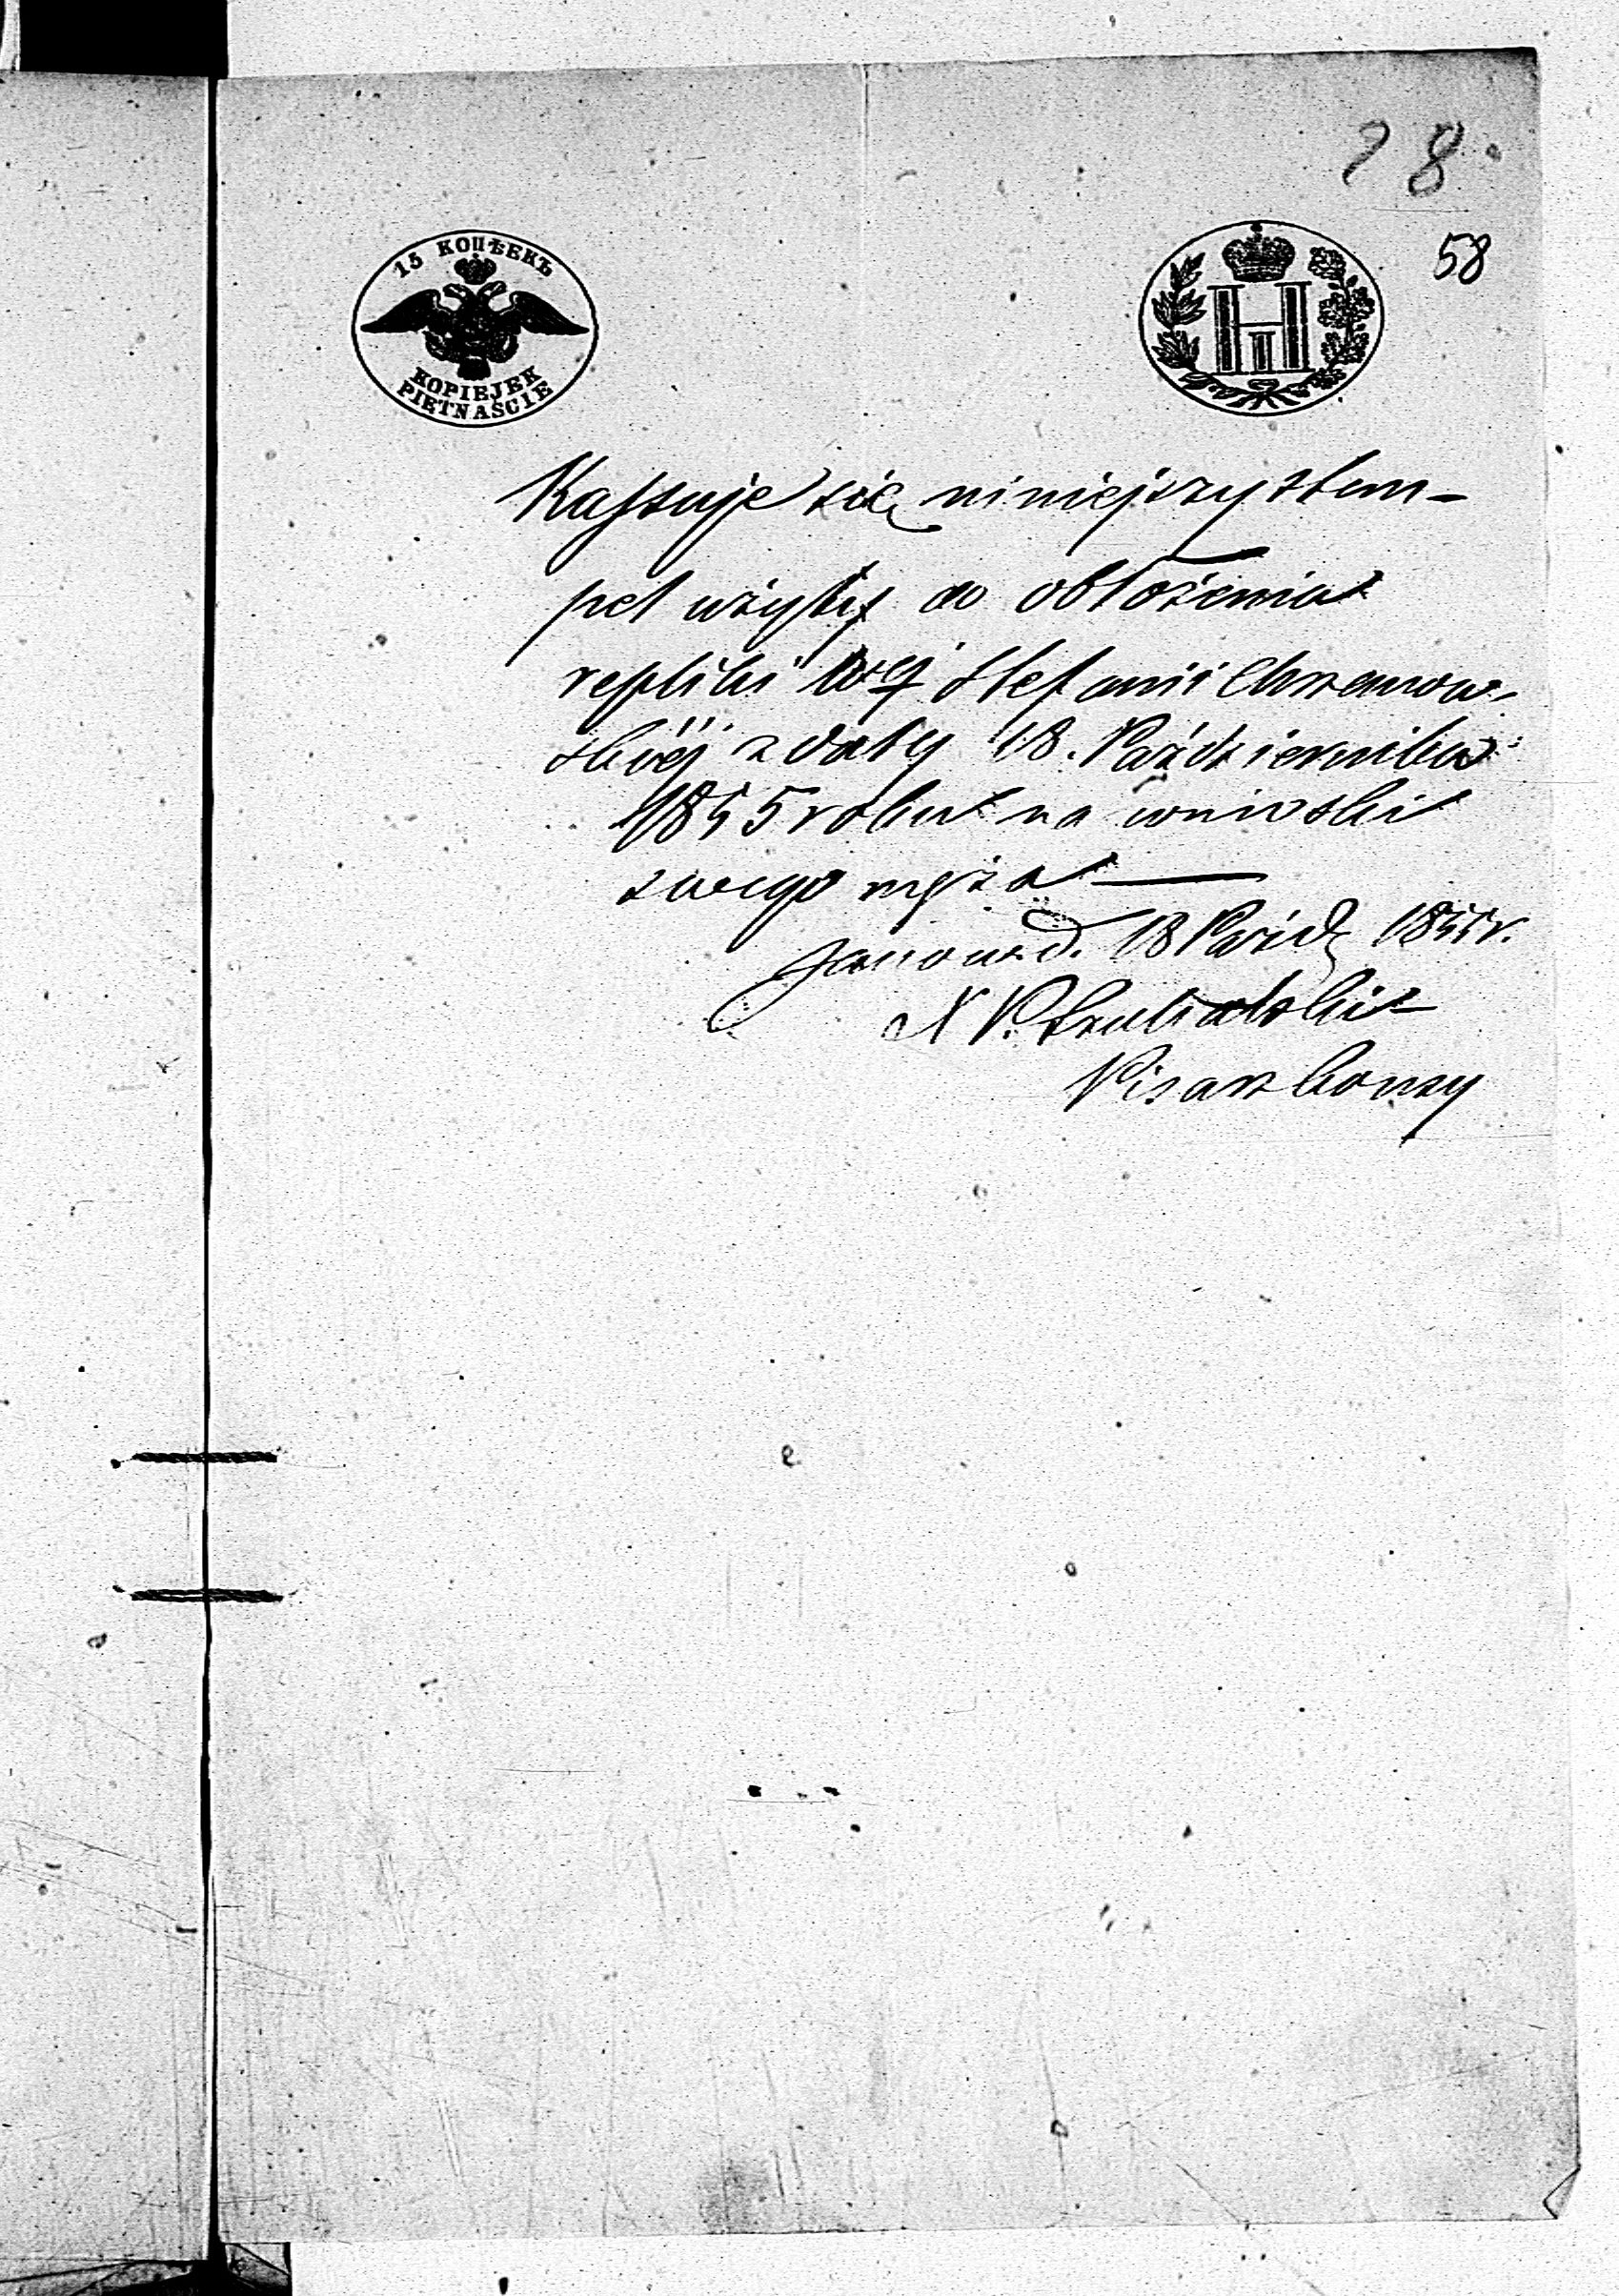 28
58
15 КОПѢЕКЪ
KOPIEJEK
PIĘTNAŚCIE
Kassuje się niniejszy stem-
pel użyty do obłożenia
repliki Wej Stefanii Chrzanow-
skiéj z daty 18. Października
1855 roku na wnioski
swego męża
Janów d. 18 Paźdz 1855 r.
X P.
Pisarz Konsy